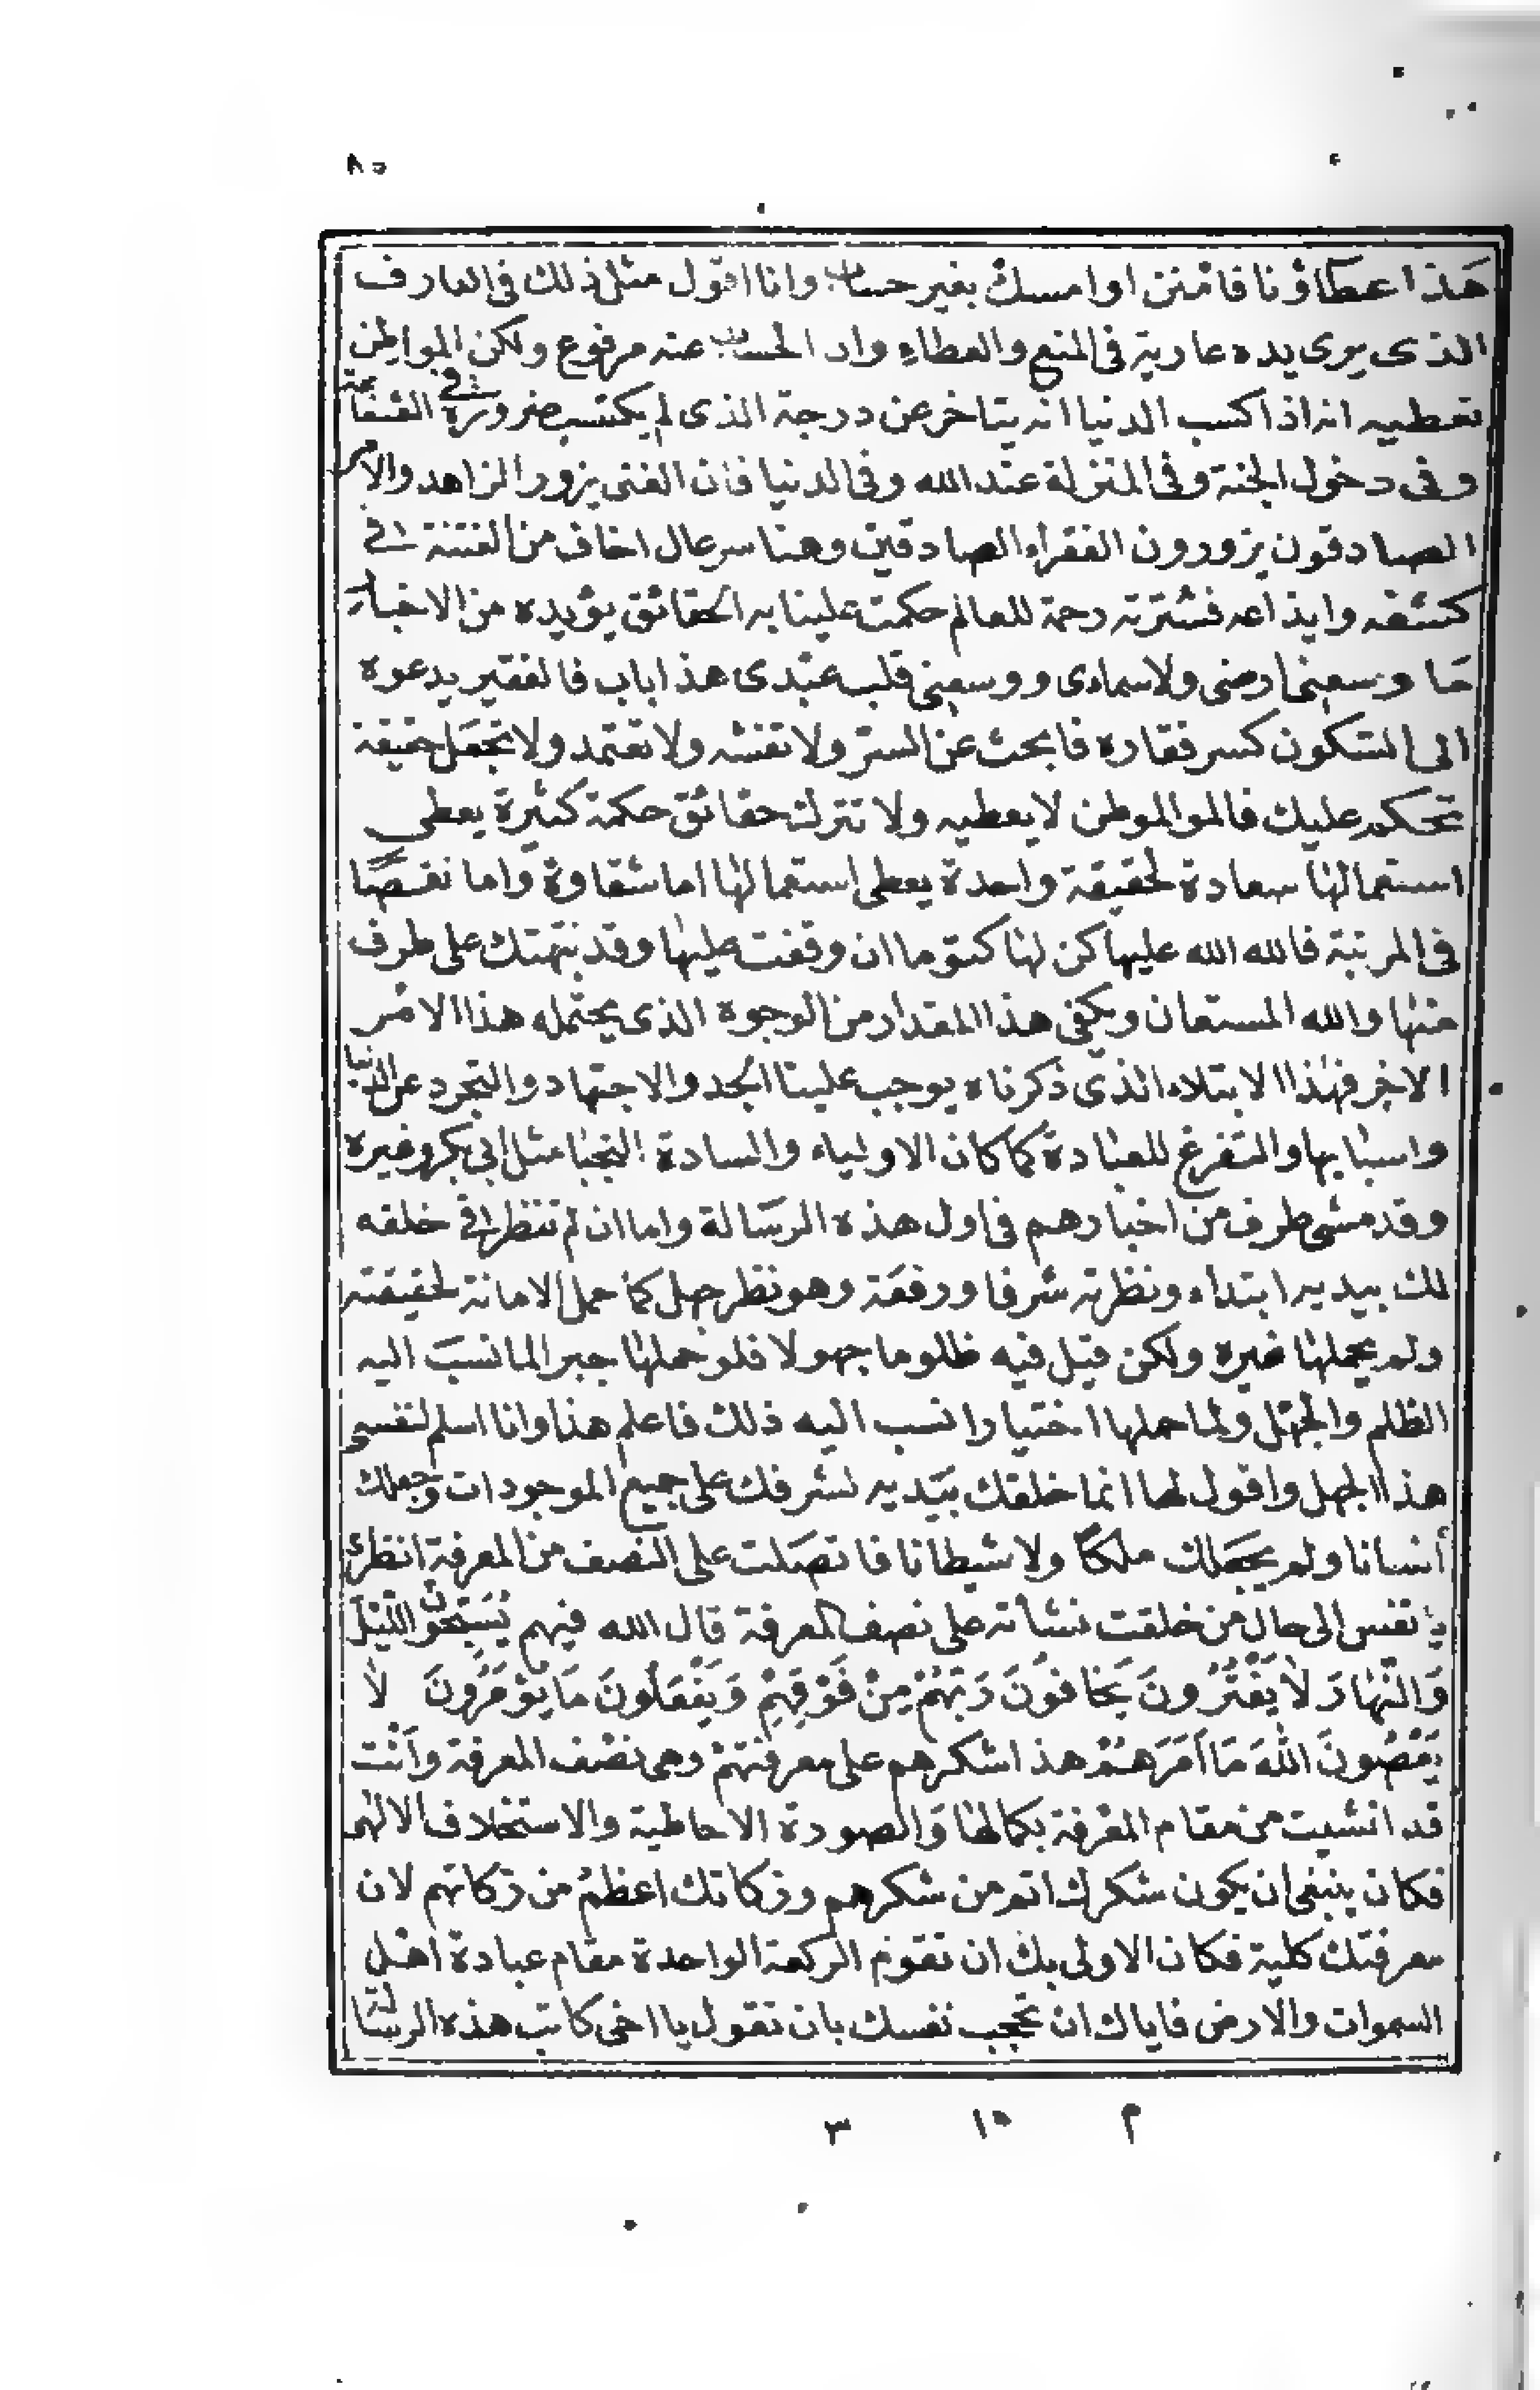 ٨٥
هَذا عطاؤنا فامنن او امسك بغير حساب وانا اقول مثل ذلك في العارف
الذى يرى يده عارية في المنع والعطاء وان الحساب عنه مرفوع ولكن المواطن
تعطيه انه اذا كسب الدنيا انه يتاخر عن درجة الذى لم يكتسب ضرورة في الشفاعة
وفي دخول الجنة وفي المنزلة عند الله وفي الدنيا فان الغنى يزور الزاهد والامر
الصادقون يزورون الفقراء الصادقين وهنا سر عال اخاف من الفتنة في
كشفه وايذاعه فسترته رحمة للعالم حكمت علينا به الحقائق يؤيده من الاخبار
مَا وسعني ارضى ولا سماءى ووسعني قلب عبدى هذا باب فالفقير يدعوه
الى السكون كسر فقاره فابحث عن السرّ ولا تفشه ولا تعتمد ولا تجعَل حقيقة
تحكم عليك فالموالموطن لا يعطيه ولا تترك حقائق حكمة كثيرة يعطى
استعمالها سعادة لحقيقة واحدة يعطى استعمالها اما شقاوة واما نقصًا
في المرتبة فالله الله عليها كن لها كتوما ان وقفت عليها وقد نبّهتك على طرف
منها والله المستعان ويكفى هذا المقدار من الوجوه الذى يحتمله هذا الامر
الاخر فهذا الابتلاء الذى ذكرناه يوجب علينا الجد والاجتهاد والتجرد عن الدنيا
واسبابها والتفرغ للعبادة كما كان الاولياء والسادة النجبا مثل ابي بكر وغيره
وقد مشى طرف من اخبارهم في اول هذه الرسالة واما ان لم تنظر في خلقه
لك بيديه ابتداء ونظرته شرفا ورفعة وهو نظر جهل كما حمل الامانة لحقيقته
ولم يحملها غيره ولكن قيل فيه ظلوما جهولا فلو حملها جبرا لما نسبَ اليه
الظلم والجهل ولما حملها اختيارا نسب اليه ذلك فاعلم هذا وانا اسلم لنفسى
هذا الجهل واقول لها انما خلقك بيَديه لشرفك على جميع الموجودات وجعلك
أنسانا ولم يجعَلك ملكًا ولا شيطانا فاتصَلت على النصف من المعرفة انظرى
يا نفسى الى حال من خلقت نشأته على نصف المعرفة قال الله فيهم يُسَبِّحُونَ اللَّيْلَ
وَالنَّهارَ لاَ يَفْتُرُونَ يَخَافُونَ رَبَّهُمْ مِنْ فَوْقِهِمْ وَيَفْعَلُونَ مَا يُؤمَرُونَ لاَ
يَعْصُونَ اللَّهَ مَا أَمَرَهُمْ هذا شكرهم على معرفتهمْ وهى نصْف المعرفة وأنْت
قد انشيت من مقام المعْرفة بكمالها وَالصورة الاحاطية والاستخلاف الالهى
فكان ينبغى ان يكون شكرك اتم من شكرهم وزكاتك اعظم من زكاتهم لان
معرفتك كلية فكان الاولى بك ان تقوم الركعة الواحدة مقام عبادة اهْل
السموات والارض فاياك ان تحجب نفسك بان تقول يا اخى كاتب هذه الرسالة
م ١٥ ٣